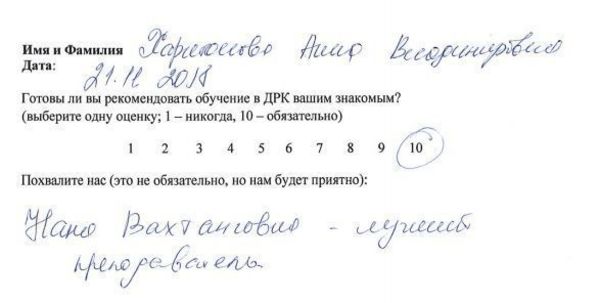 Имя и Фамилия Харитонова Анна Владимировна
Дата:
21.11 2018
Готовы ли вы рекомендовать обучение в ДРК вашим знакомым?
(выберите одну оценку; 1 – никогда, 10 – обязательно)
1 2 3 4 5 6 7 8 9 10
Похвалите нас (это не обязательно, но нам будет приятно):
Нана Вахтанговна - лучший
преподаватель